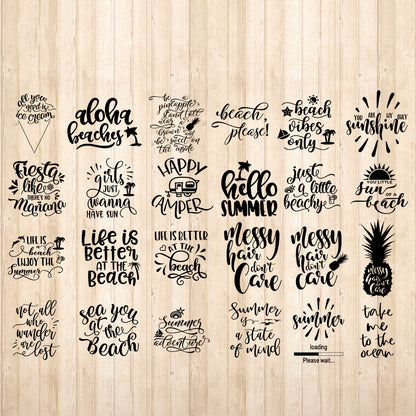 all you
need is
ice cream
aloha
beaches
be a
pineapple
stand tall
wear a
crown
be sweet on
the inside
beach,
please!
beach
vibes
only
YOU ARE MY ONLY
sunshine
Fiesta
like
THERE'S NO
Mañana
girls
JUST
wanna
HAVE SUN
HAPPY
CAMPER
hello
SUMMER
Just
a little
beachy
YOU LITTLE
Sun
OF A
beach
LIFE IS
BEACH
ENJOY THE
Summer
Life is
Better
AT THE
Beach
LIFE IS BETTER
AT THE
beach
Messy
hair
don't
Care
Messy
hair
don't
Care
Messy
hair
don't
Care
not all
who
wander
are lost
sea you
at the
Beach
Summer
adventure
Summer
is
a state
of mind
summer
loading
Please wait...
take
me to
the
ocean